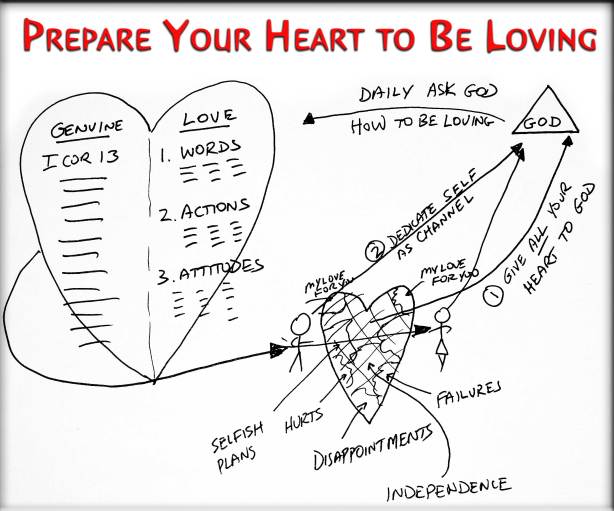 PREPARE YOUR HEART TO BE LOVING
GENUINE
I COR 13
LOVE
1. WORDS
2. ACTIONS
3. ATTITUDES
DAILY ASK GOD
HOW TO BE LOVING
GOD
② DEDICATE SELF
AS CHANNEL
① GIVE ALL YOUR
HEART TO GOD
MY LOVE
FOR YOU
MY LOVE
FOR YOU
SELFISH
PLANS
HURTS
DISAPPOINTMENTS
FAILURES
INDEPENDENCE